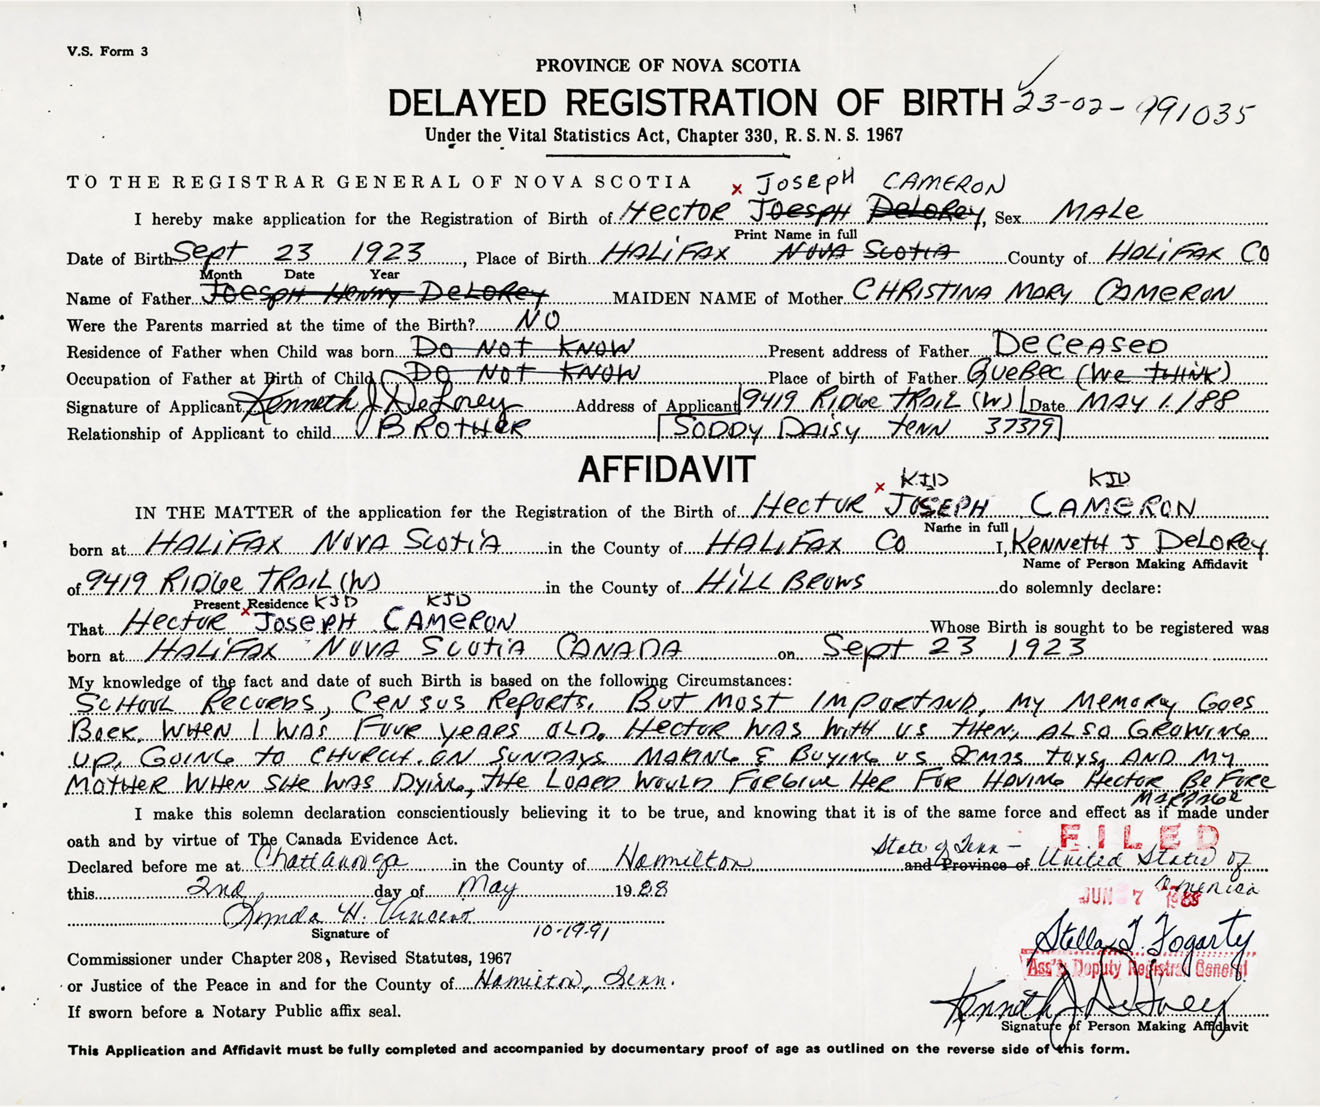 V.S. Form 3
PROVINCE OF NOVA SCOTIA
DELAYED REGISTRATION OF BIRTH 23-02-991035
Under the Vital Statistics Act, Chapter 330, R.S.N.S. 1967
TO THE REGISTRAR GENERAL OF NOVA SCOTIA x JOSEPH CAMERON
I hereby make application for the Registration of Birth of HECTOR JOESPH DELOREY, Sex MALE
Print Name in full
Date of Birth Sept 23 1923, Place of Birth HALIFAX NOVA SCOTIA County of HALIFAX CO
Month Date Year
Name of Father JOESPH HENRY DELOREY MAIDEN NAME of Mother CHRISTINA MARY CAMERON
Were the Parents married at the time of the Birth? NO
Residence of Father when Child was born DO NOT KNOW Present address of Father DECEASED
Occupation of Father at Birth of Child DO NOT KNOW Place of birth of Father QUEBEC (WE THINK)
Signature of Applicant Kenneth J DeLorey Address of Applicant 9419 RIDGE TRAIL (W) Date MAY 1./88
Relationship of Applicant to child BROTHER SODDY DAISY TENN 37379
AFFIDAVIT
KJD KJD
IN THE MATTER of the application for the Registration of the Birth of HECTOR x JOSEPH CAMERON
Name in full
born at HALIFAX NOVA SCOTIA in the County of HALIFAX CO I, KENNETH J DELOREY
Name of Person Making Affidavit
of 9419 RIDGE TRAIL (W) in the County of HILL BROWS do solemnly declare:
Present Residence KJD KJD
That HECTOR x JOSEPH CAMERON Whose Birth is sought to be registered was
born at HALIFAX NOVA SCOTIA CANADA on Sept 23 1923
My knowledge of the fact and date of such Birth is based on the following Circumstances:
SCHOOL RECORDS, CENSUS REPORTS. BUT MOST IMPORTAND, MY MEMORY GOES
BACK. WHEN I WAS FOUR YEARS OLD. HECTOR WAS WITH US THEN, ALSO GROWING
UP, GOING TO CHURCH. ON SUNDAYS MAKING & BUYING US XMAS TOYS, AND MY
MOTHER WHEN SHE WAS DYING, THE LOARD WOULD FORGIVE HER FOR HAVING HECTOR BEFORE
MARRAGE
I make this solemn declaration conscientiously believing it to be true, and knowing that it is of the same force and effect as if made under
oath and by virtue of The Canada Evidence Act.
FILED
Declared before me at Chattanooga in the County of Hamilton State of Tenn - and Province of United States of
America
this 2nd day of May 1988
JUN 7 1988
Linda H. Vincent
Signature of 10-19-91
Stella T. Fogarty
Commissioner under Chapter 208, Revised Statutes, 1967
Ass't Deputy Registrar General
or Justice of the Peace in and for the County of Hamilton, Tenn.
Kenneth J DeLorey
If sworn before a Notary Public affix seal.
Signature of Person Making Affidavit
This Application and Affidavit must be fully completed and accompanied by documentary proof of age as outlined on the reverse side of this form.